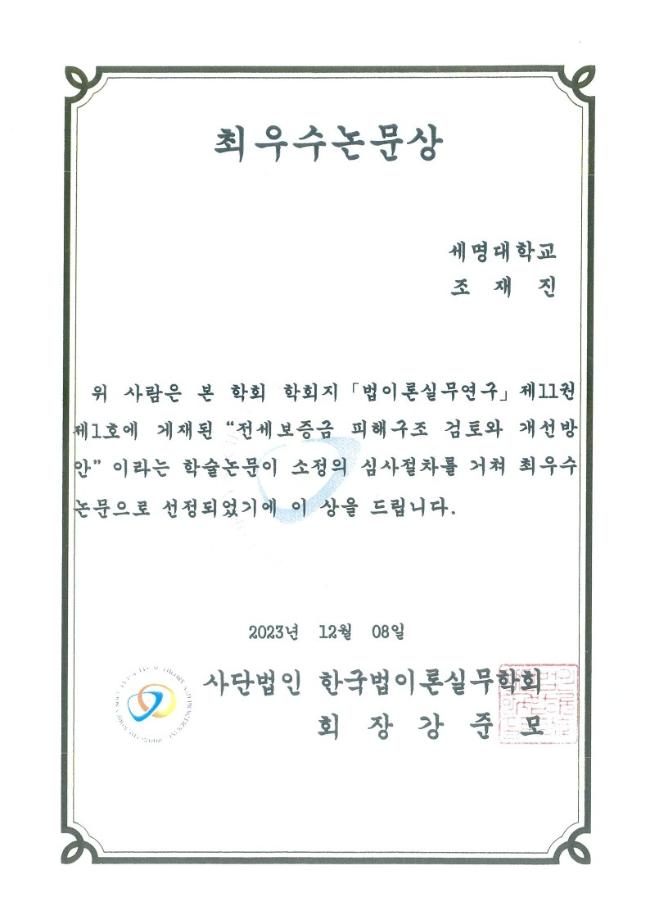 최우수논문상
세명대학교
조 재 진
위 사람은 본 학회 학회지 「법이론실무연구」 제11권
제1호에 게재된 “전세보증금 피해구조 검토와 개선방
안” 이라는 학술논문이 소정의 심사절차를 거쳐 최우수
논문으로 선정되었기에 이 상을 드립니다.
2023년 12월 08일
사단법인 한국법이론실무학회
회 장 강 준 모